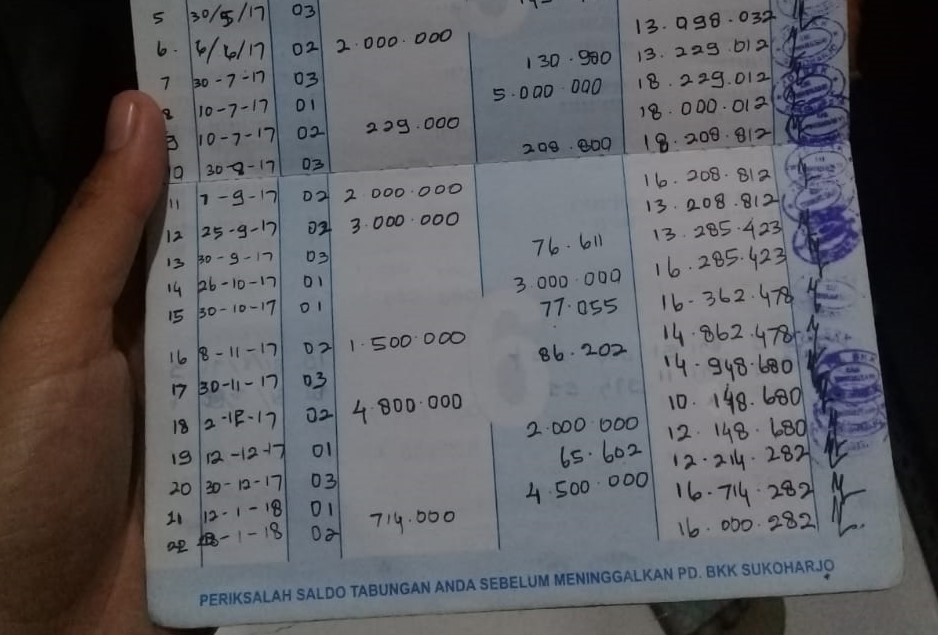 5 30/5/17 03 13.098.032
6. 6/6/17 02 2.000.000 13.229.012
7 30-7-17 03 130.980 18.229.012
8 10-7-17 01 5.000.000 18.000.012
9 10-7-17 02 229.000 18.208.812
10 30-8-17 03 208.800
11 7-9-17 02 2.000.000 16.208.812
12 25-9-17 02 3.000.000 13.208.812
13 30-9-17 03 76.611 13.285.423
14 26-10-17 01 3.000.000 16.285.423
15 30-10-17 01 77.055 16.362.478
16 8-11-17 02 1.500.000 14.862.478
17 30-11-17 03 86.202 14.948.680
18 2-12-17 02 4.800.000 10.148.680
19 12-12-17 01 2.000.000 12.148.680
20 30-12-17 03 65.602 12.214.282
21 12-1-18 01 4.500.000 16.714.282
22 28-1-18 02 714.000 16.000.282
PERIKSALAH SALDO TABUNGAN ANDA SEBELUM MENINGGALKAN PD. BKK SUKOHARJO